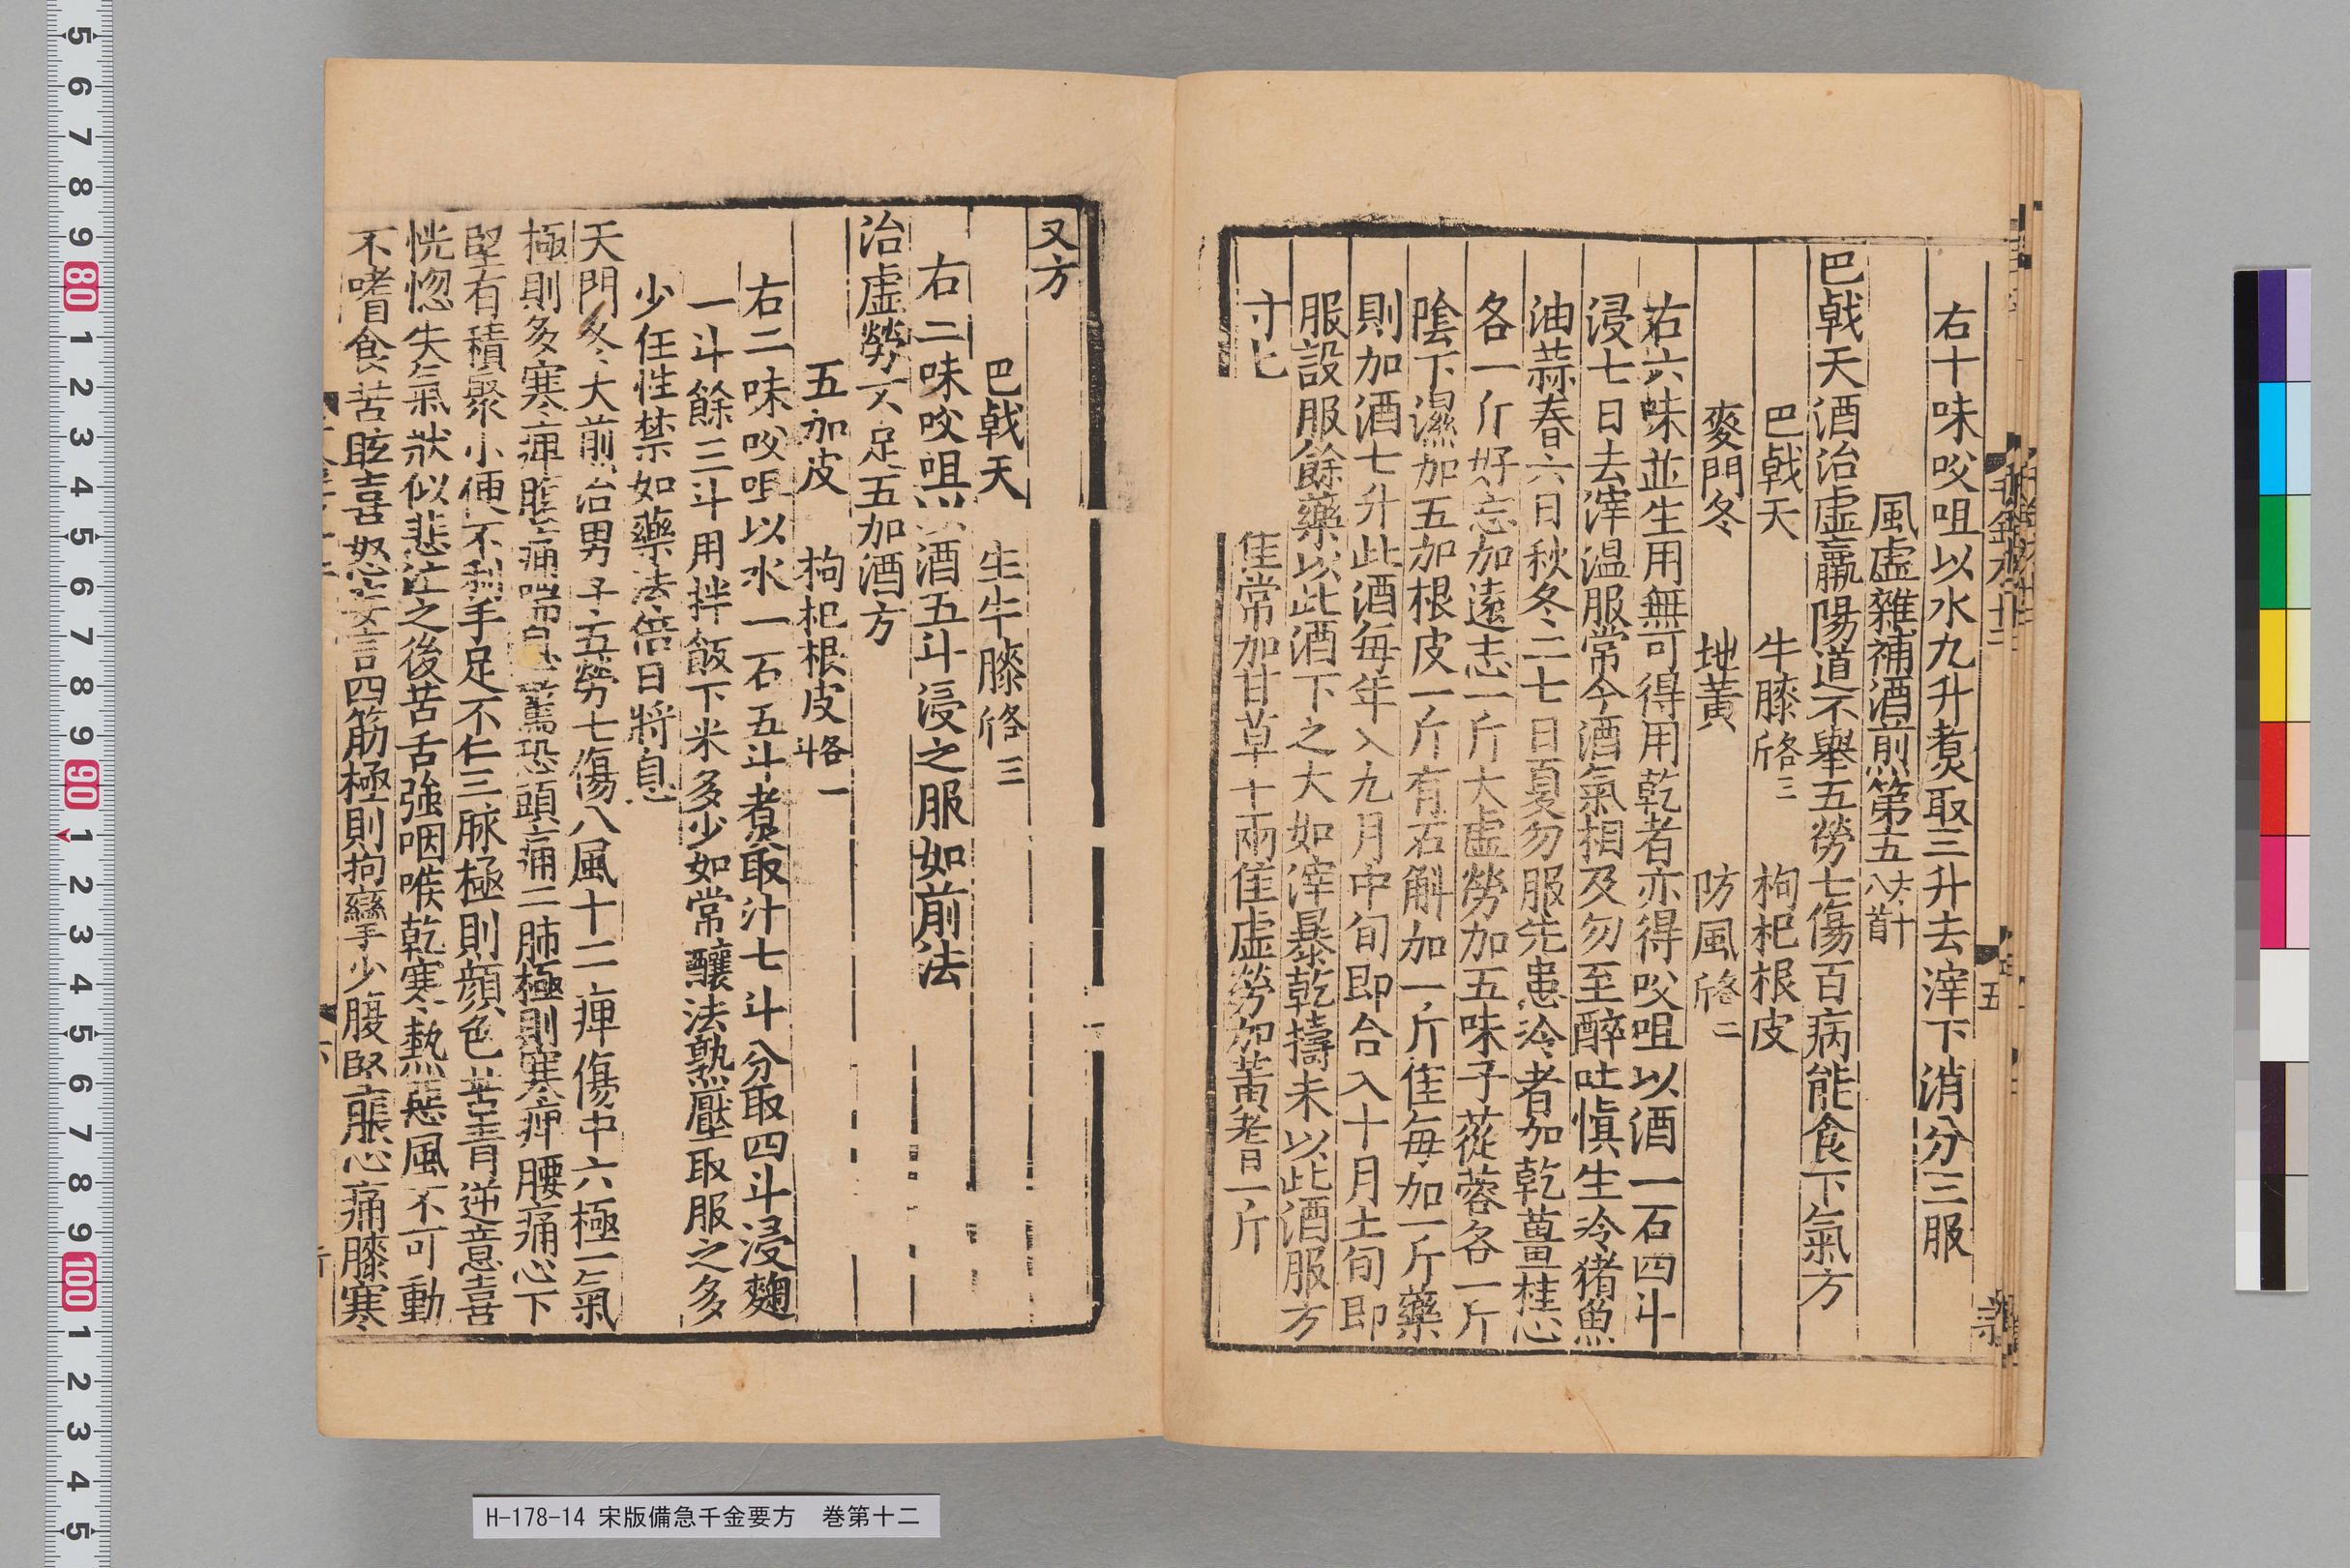 右十味㕮咀以水九升煮取三升去滓下消分三服
風虛雜補酒煎第五
八首
巴戟天酒治虛羸陽道不舉五勞七傷百病能食下氣方
巴戟天 牛膝各三 枸杞根皮
麥門冬 地黃 防風各二
右六味並生用無可得用乾者亦得㕮咀以酒一石四斗
浸七日去滓温服常令酒氣相及勿至醉吐慎生冷猪魚
油蒜春六日秋冬二七日夏勿服先患冷者加乾薑桂心
各一斤好忘加遠志一斤大虛勞加五味子蓯蓉各一斤
陰下濕加五加根皮一斤有石斛加一斤佳每加一斤藥
則加酒七升此酒每年入九月中旬即合入十月上旬即
服設服餘藥以此酒下之大如滓暴乾擣末以此酒服方
寸匕 佳常加甘草十兩佳虛勞加黃耆一斤
又方
巴戟天 生牛膝各三
右二味㕮咀以酒五斗浸之服如前法
治虛勞不足五加酒方
五加皮 枸杞根皮各一斗
右二味㕮咀以水一石五斗煮取汁七斗分取四斗浸麴
一斗餘三斗用拌飯下米多少如常釀法熟壓取服之多
少任性禁如藥法倍日將息
天門冬大煎治男子五勞七傷八風十二痺傷中六極一氣
極則多寒痺腹痛喘息驚恐頭痛二肺極則寒痺腰痛心下
堅有積聚小便不利手足不仁三脉極則顏色苦青逆意喜
恍惚失氣狀似悲泣之後苦舌強咽喉乾寒熱惡風不可動
不嗜食苦眩喜怒妄言四筋極則拘攣少腹堅脹心痛膝寒
H-178-14 宋版備急千金要方 巻第十二